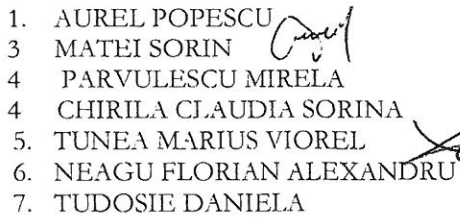 1. AUREL POPESCU
3 MATEI SORIN
4 PARVULESCU MIRELA
4 CHIRILA CLAUDIA SORINA
5. TUNEA MARIUS VIOREL
6. NEAGU FLORIAN ALEXANDRU
7. TUDOSIE DANIELA